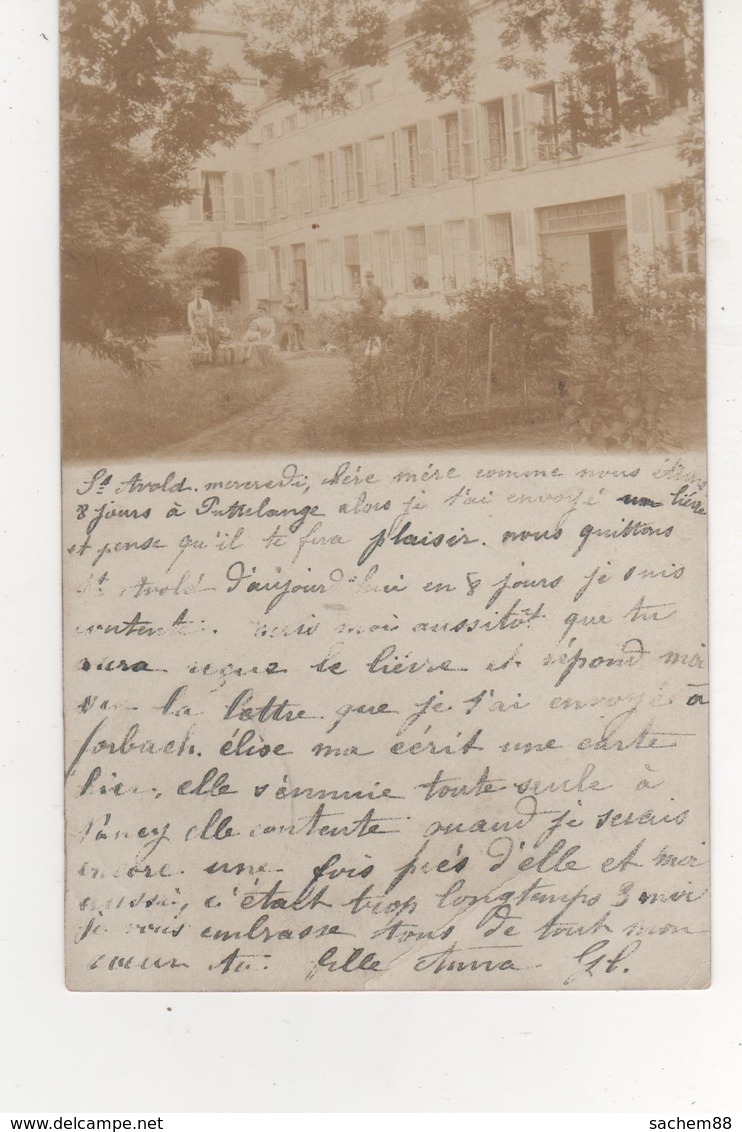 St Avold. mercredi, chére mére comme nous étions
8 jours à Puttelange alors je t'ai envoyé un liévre
et pense qu'il te fera plaisir. nous quittons
St Avold d'aujourd'hui en 8 jours je suis
contente. écris moi aussitôt que tu
aura reçue le liévre et répond moi
sur la lettre que je t'ai envoyé à
forbach. élise ma écrit une carte
hier, elle s'énnuie toute seule à
Nancy elle contente quand je serais
encore une fois prés d'elle et moi
aussi, c'était trop longtemps 3 moi
je vous embrasse tous de tout mon
coeur ta fille Anna
delcampe.net
sachem88